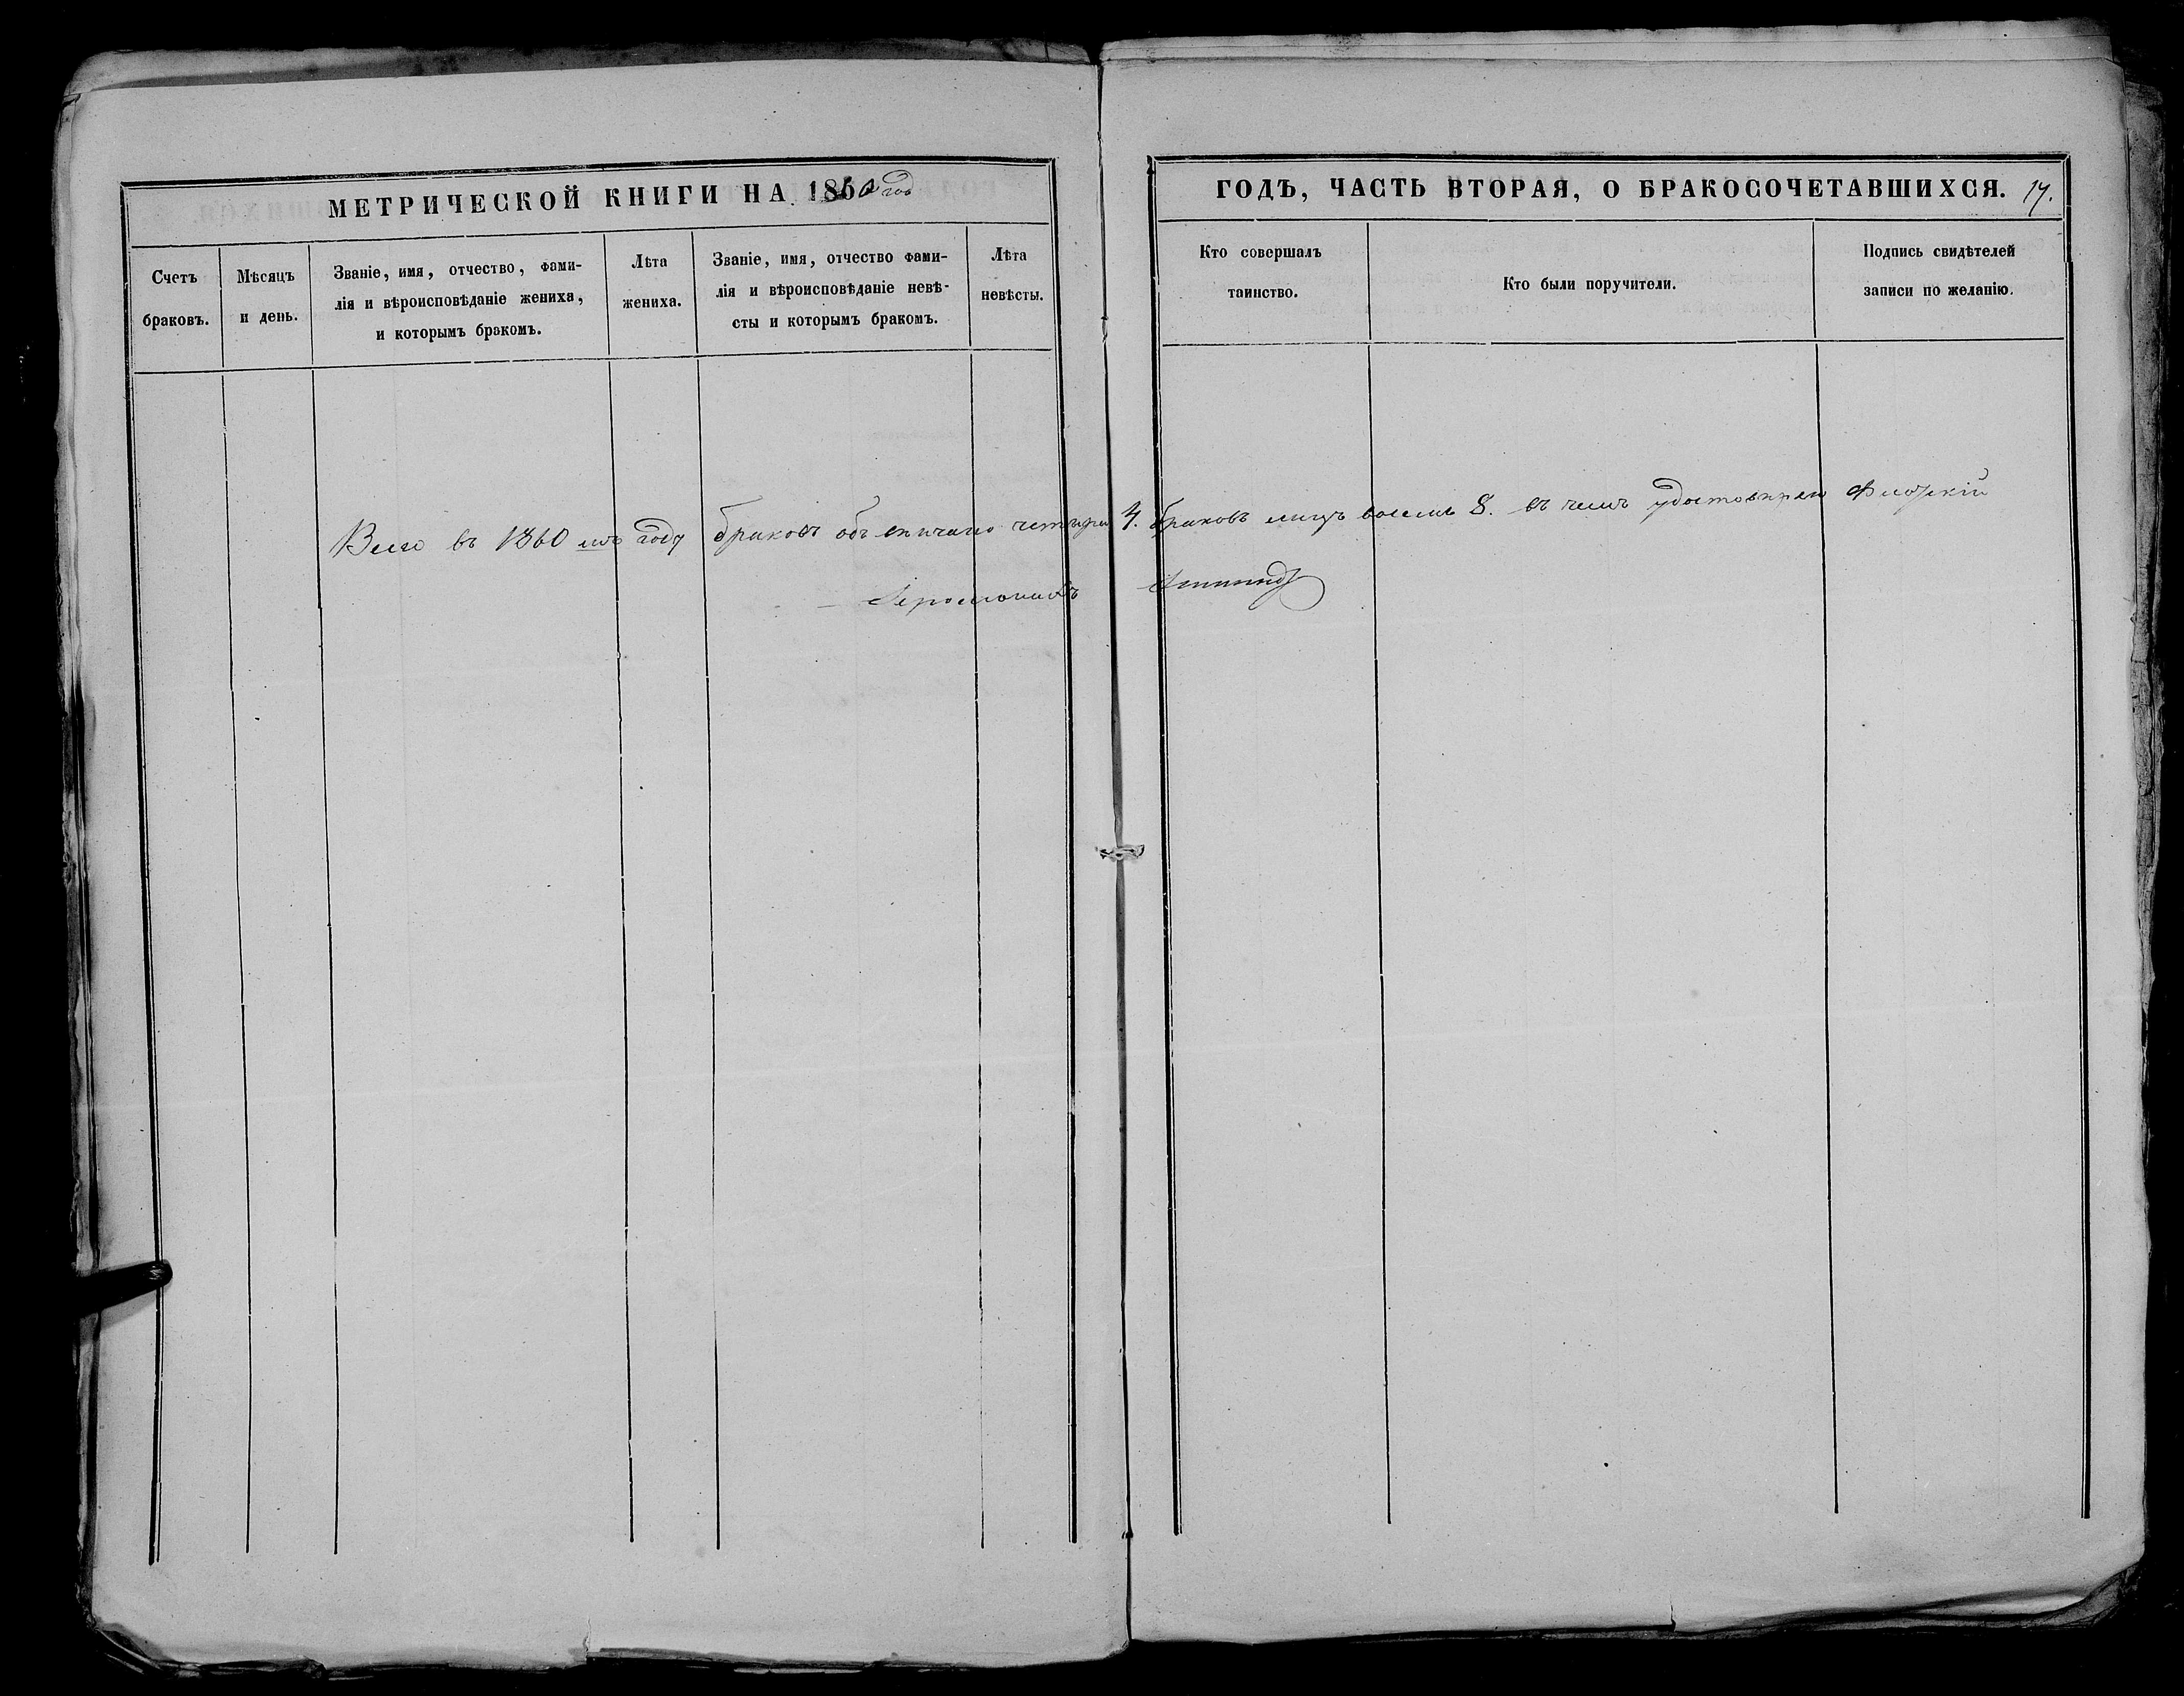 МЕТРИЧЕСКОЙ КНИГИ НА 1860 год
Счетъ
браковъ.
Мѣсяцъ
и день.
Званіе, имя, отчество, фами-
лія и вѣроисповѣданіе жениха,
и которымъ бракомъ.
Лѣта
жениха.
Званіе, имя, отчество фами-
лія и вѣроисповѣданіе невѣ-
сты и которымъ бракомъ.
Лѣта
невѣсты.
ГОДЪ, ЧАСТЬ ВТОРАЯ, О БРАКОСОЧЕТАВШИХСЯ. 17.
Кто совершалъ
таинство.
Кто были поручители.
Подпись свидѣтелей
записи по желанію.
Всего въ 1860 мъ году браковъ обвѣнчано четыри 4. браковъ лицъ восемь 8. въ чемъ удостовѣряю
Іеромонахъ